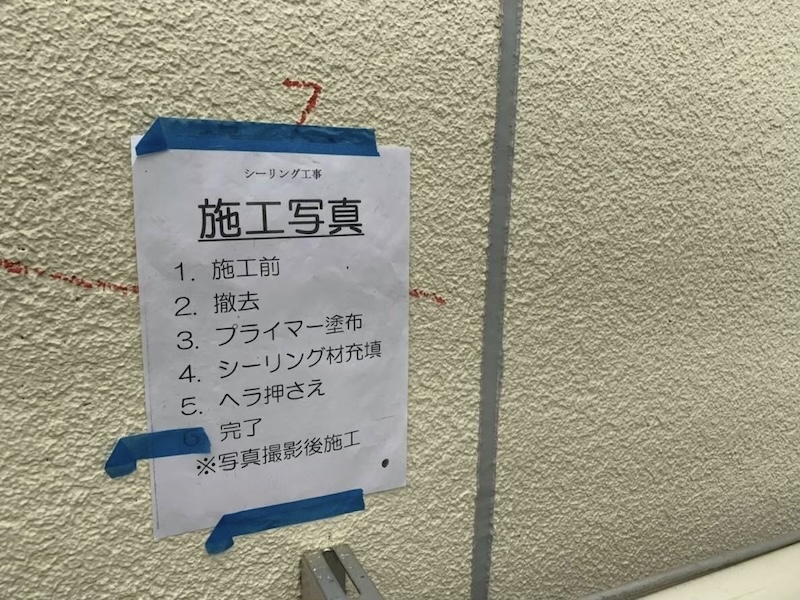 フ
シーリング工事
施工写真
1. 施工前
2. 撤去
3. プライマー塗布
4. シーリング材充填
5. ヘラ押さえ
6. 完了
※写真撮影後施工